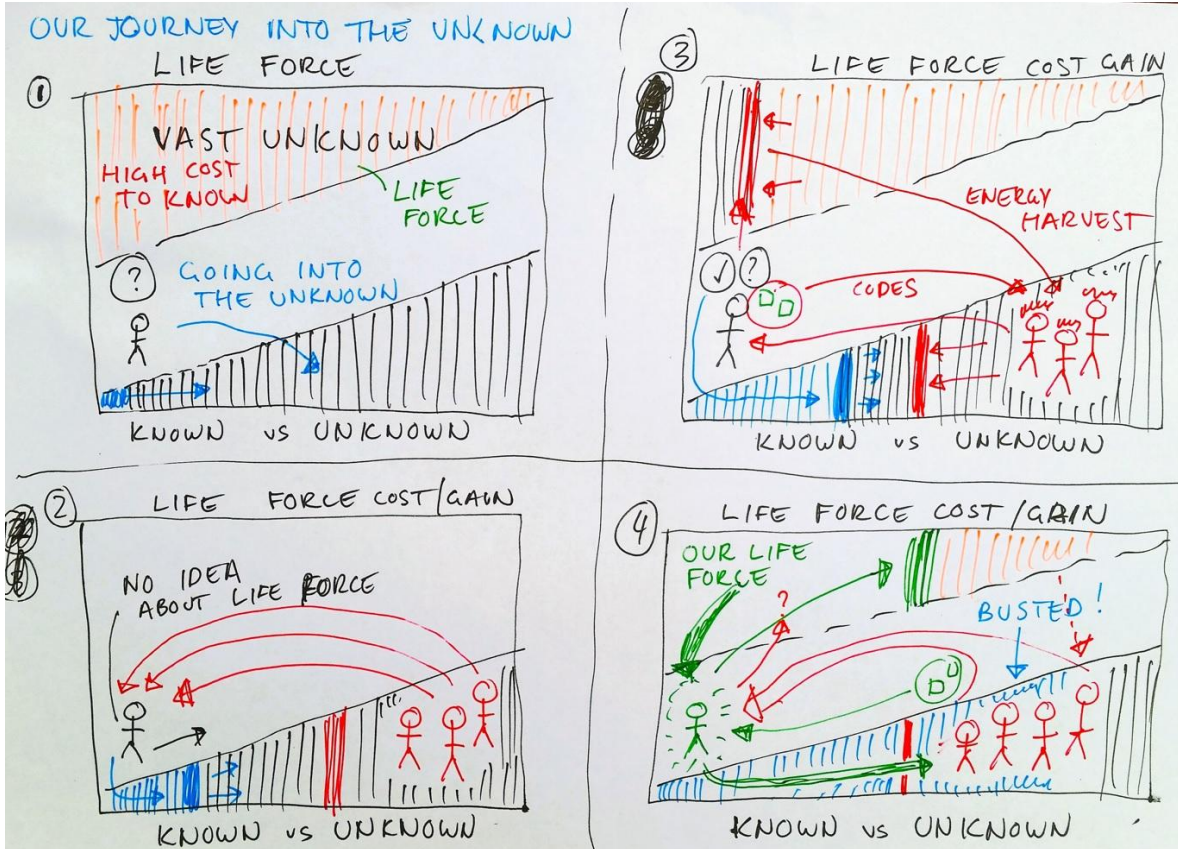 OUR JOURNEY INTO THE UNKNOWN
①
LIFE FORCE
VAST UNKNOWN
HIGH COST
TO KNOWN
LIFE
FORCE
?
GOING INTO
THE UNKNOWN
KNOWN vs UNKNOWN
②
LIFE FORCE COST/GAIN
NO IDEA
ABOUT LIFE FORCE
KNOWN vs UNKNOWN
③
LIFE FORCE COST GAIN
ENERGY
HARVEST
✓ ?
CODES
KNOWN vs UNKNOWN
④
LIFE FORCE COST/GAIN
OUR LIFE
FORCE
?
BUSTED!
KNOWN vs UNKNOWN